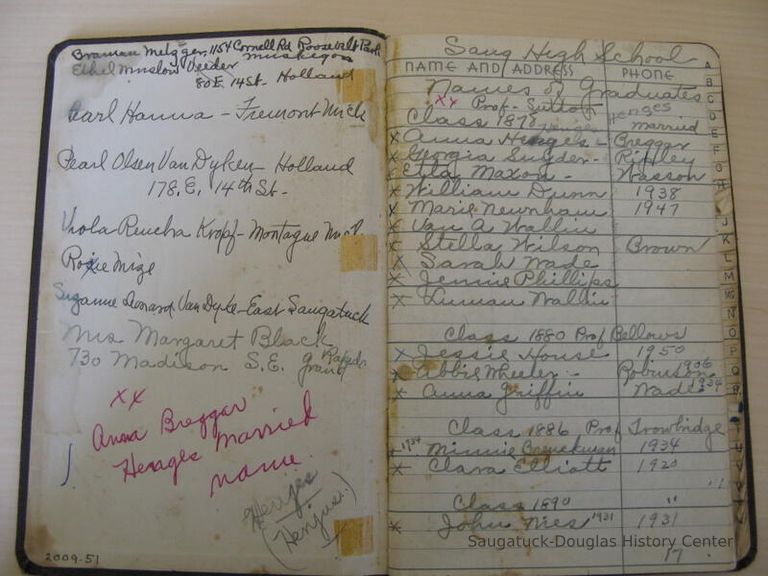 Braman Metzger, 1154 Cornell Rd Roosevelt Park
Muskegon
Ethel Winslow Veeder
80 E. 14 St - Holland
Pearl Hanna - Fremont Mich
Pearl Olsen Van Dyken - Holland
178. E. 14th St -
Rencha Kropf - Montague Mich
Roxie Mize
Suzanne Leonard Van Dyke - East Saugatuck
Mrs Margaret Black
730 Madison S.E. Grand Rapids
XX
Anna Breggar
Henges Married
name.
Henges
(Henjes.)
2009.51
Saug High School
NAME AND ADDRESS PHONE
Names of Graduates
XX Prof - Sutton
Class 1878 Henges married
x Anna Henges - Breggar
x Georgia Snyder - Ripley
x Etta Maxon - Wasson
x William Dunn 1938
x Marie Newnham 1947
x Van A Wallin
x Stella Wilson Brown
x Sarah Wade
x Jennie Phillips
x Luman Wallin
Class 1880 Prof Bellows
x Jessie House 1950
x Abbie Wheeler - Robinson 1906
x Anna Griffin Wade 1934
Class 1886 Prof Trowbridge
x 1934 Minnie 1934
x Clara Elliott 1920
Class 1890 "
x John Mies 1931 1931
17
A
B
C
D
E
F
G
H
J
K
L
M
N
O
P
Q
R
Saugatuck-Douglas History Center